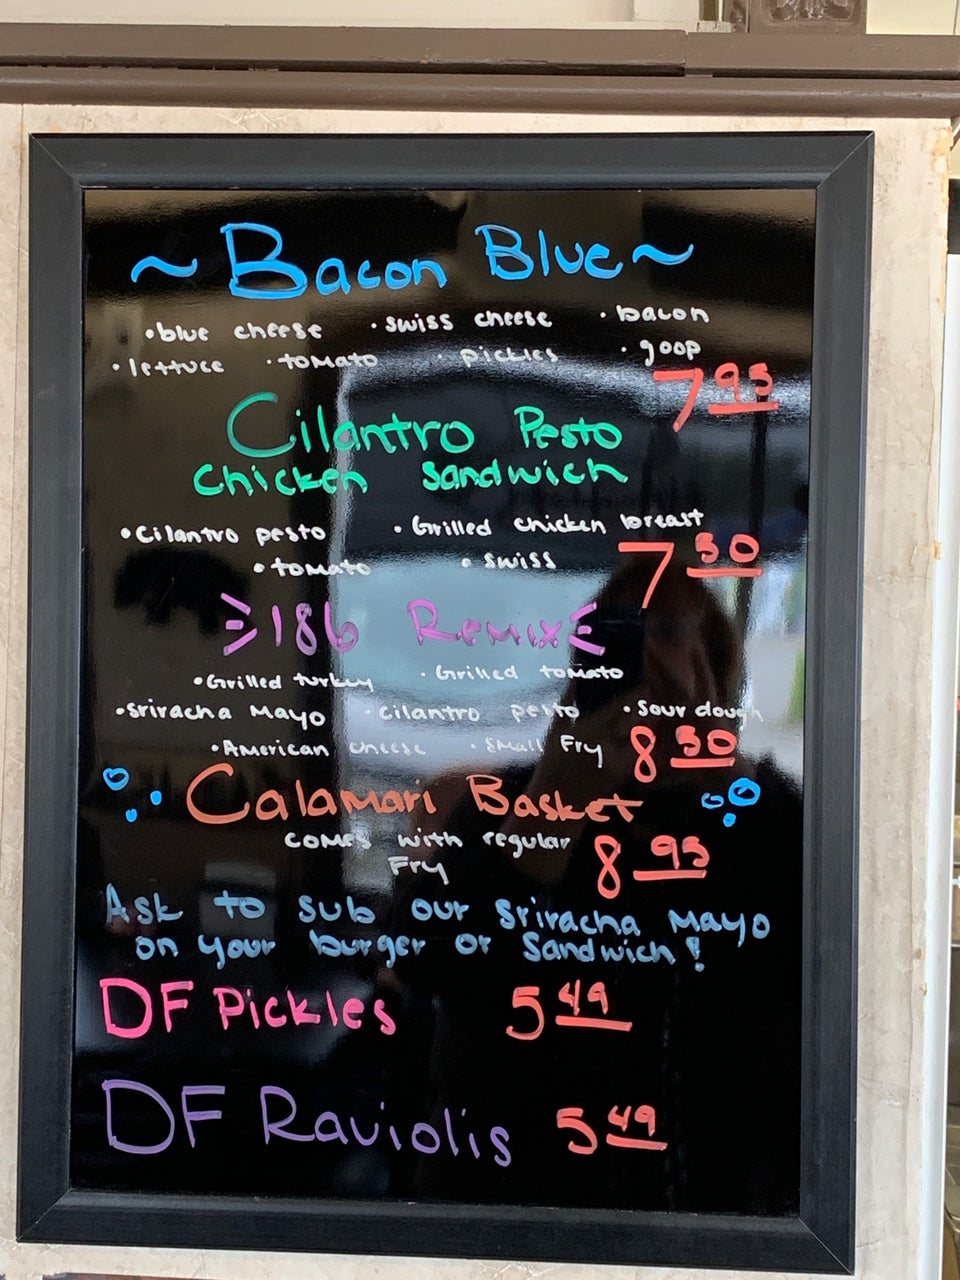 ~ Bacon Blue ~
• blue cheese • swiss cheese • bacon
• lettuce • tomato • pickles • goop
7 95
Cilantro Pesto
Chicken Sandwich
• Cilantro pesto • Grilled chicken breast
• tomato • swiss
7 50
186 Remix
• Grilled turkey • Grilled tomato
• Sriracha Mayo • cilantro pesto • Sour dough
• American cheese • Small Fry
8 50
Calamari Basket
comes with regular
Fry
8 95
Ask to sub our Sriracha Mayo
on your burger or Sandwich!
DF Pickles 5 49
DF Raviolis 5 49